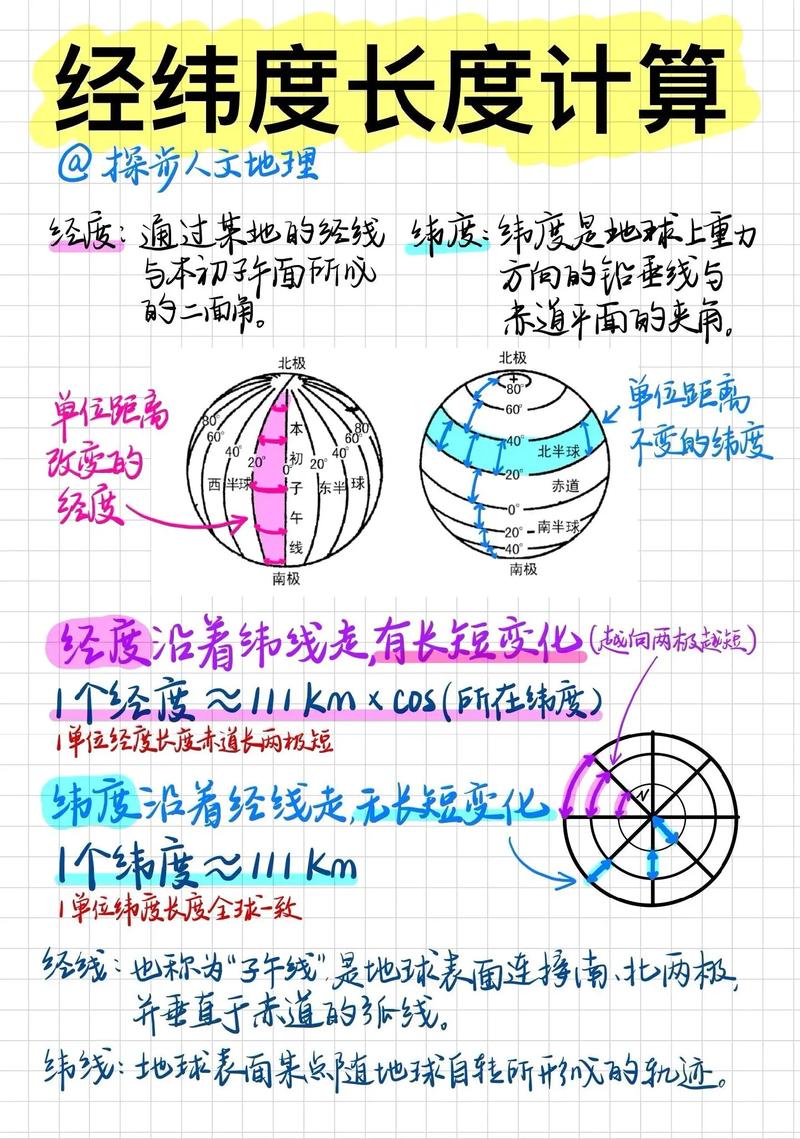 经纬度长度计算
@探步人文地理
经度:通过某地的经线
与本初子午面所成
的二面角。
纬度:纬度是地球上重力
方向的铅垂线与
赤道平面的夹角。
单位距离
改变的
经度
北极
80° 60° 40° 20° 0° 20° 40° 60° 80°
西半球
本初子午线
东半球
南极
北极
80°
60°
40°
北半球
20°
赤道
0°
20° 南半球
40°
南极
单位距离
不变的纬度
经度沿着纬线走,有长短变化(越向两极越短)
1个经度≈111Km×cos(所在纬度)
1单位经度长度赤道长两极短
N
纬度沿着经线走,无长短变化
1个纬度≈111Km
1单位纬度长度全球一致
经线:也称为“子午线”,是地球表面连接南、北两极,
并垂直于赤道的弧线。
纬线:地球表面某点随地球自转所形成的轨迹。